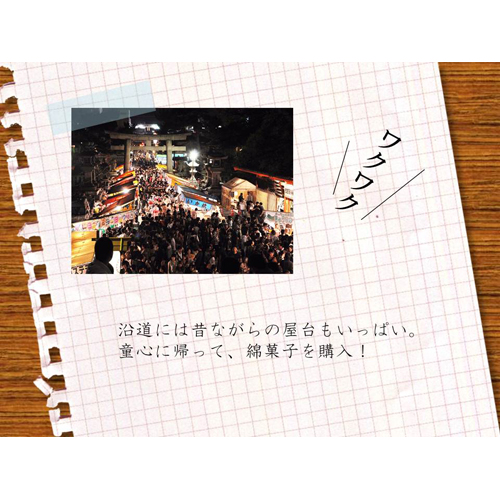 ワクワク
沿道には昔ながらの屋台もいっぱい。
童心に帰って、綿菓子を購入！